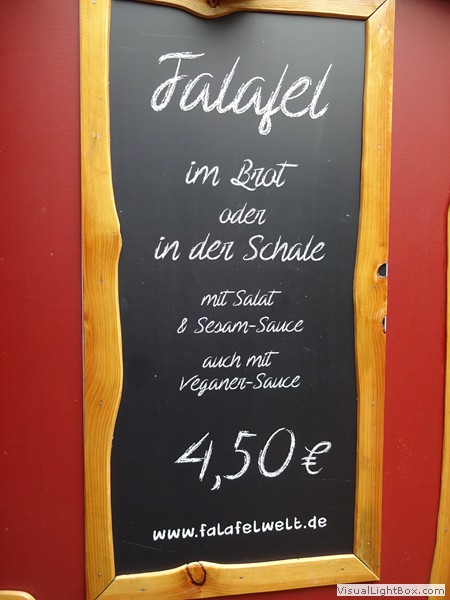 Falafel
im Brot
oder
in der Schale
mit Salat
& Sesam-Sauce
auch mit
Veganer-Sauce
4,50 €
www.falafelwelt.de
VisualLightBox.com